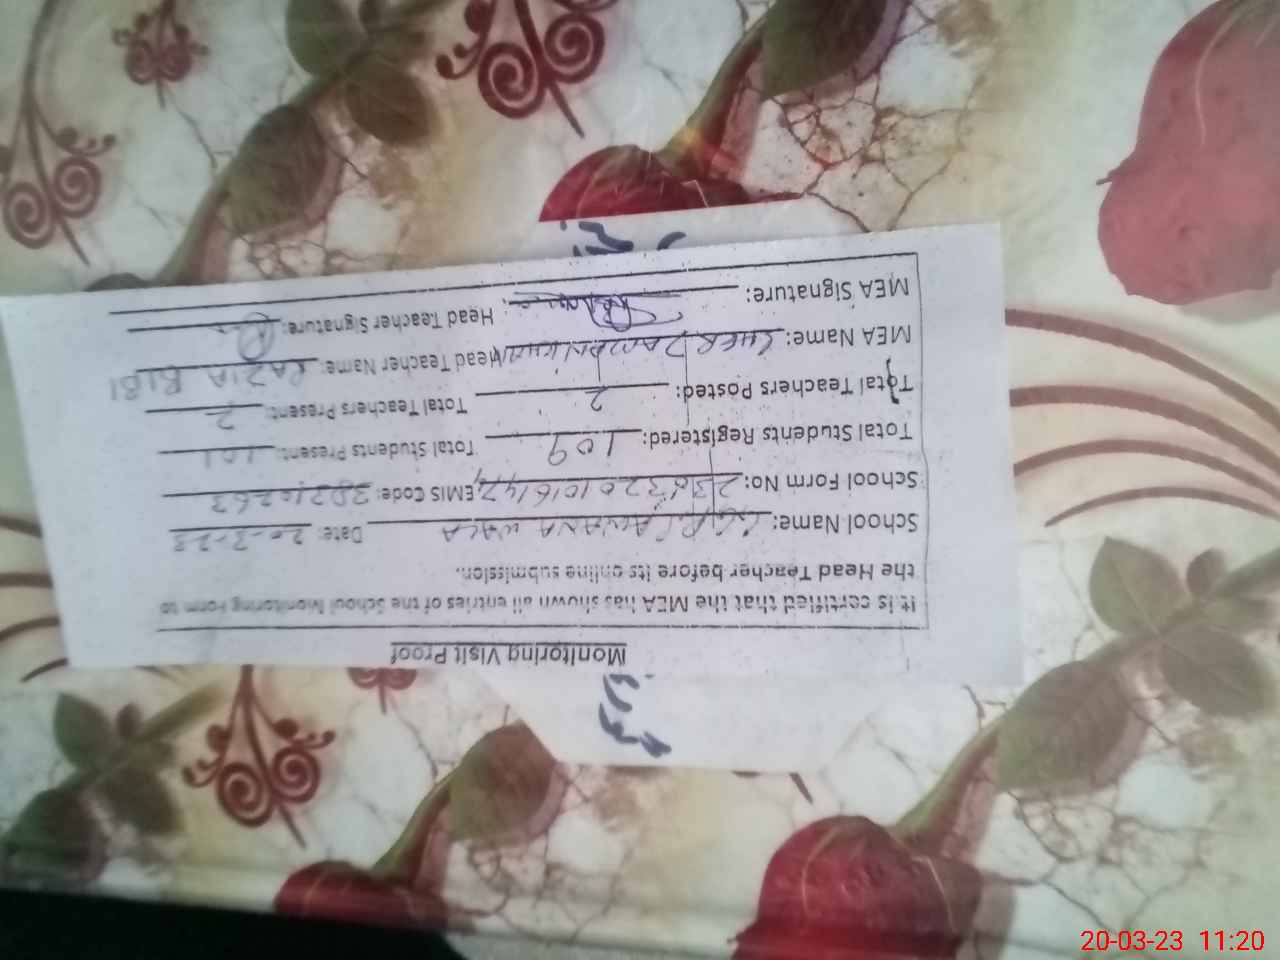 Monitoring Visit Proof
It is certified that the MEA has shown all entries of the School Monitoring Form to
the Head Teacher before its online submission.
School Name: GGPS AWANA WALA Date: 20-3-23
School Form No: EMIS Code: 38210263
Total Students Registered: 109 Total Students Present: 101
Total Teachers Posted: 2 Total Teachers Present: 2
MEA Name: SHER ZAMAN KHAN Head Teacher Name: RAZIA BIBI
MEA Signature: Head Teacher Signature:
20-03-23 11:20